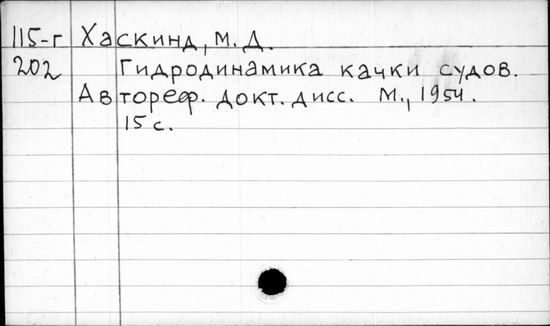 115-г Хаскинд, М. Д.
202 Гидродинамика качки судов.
Автореф. докт. дисс. М., 1954.
15 с.